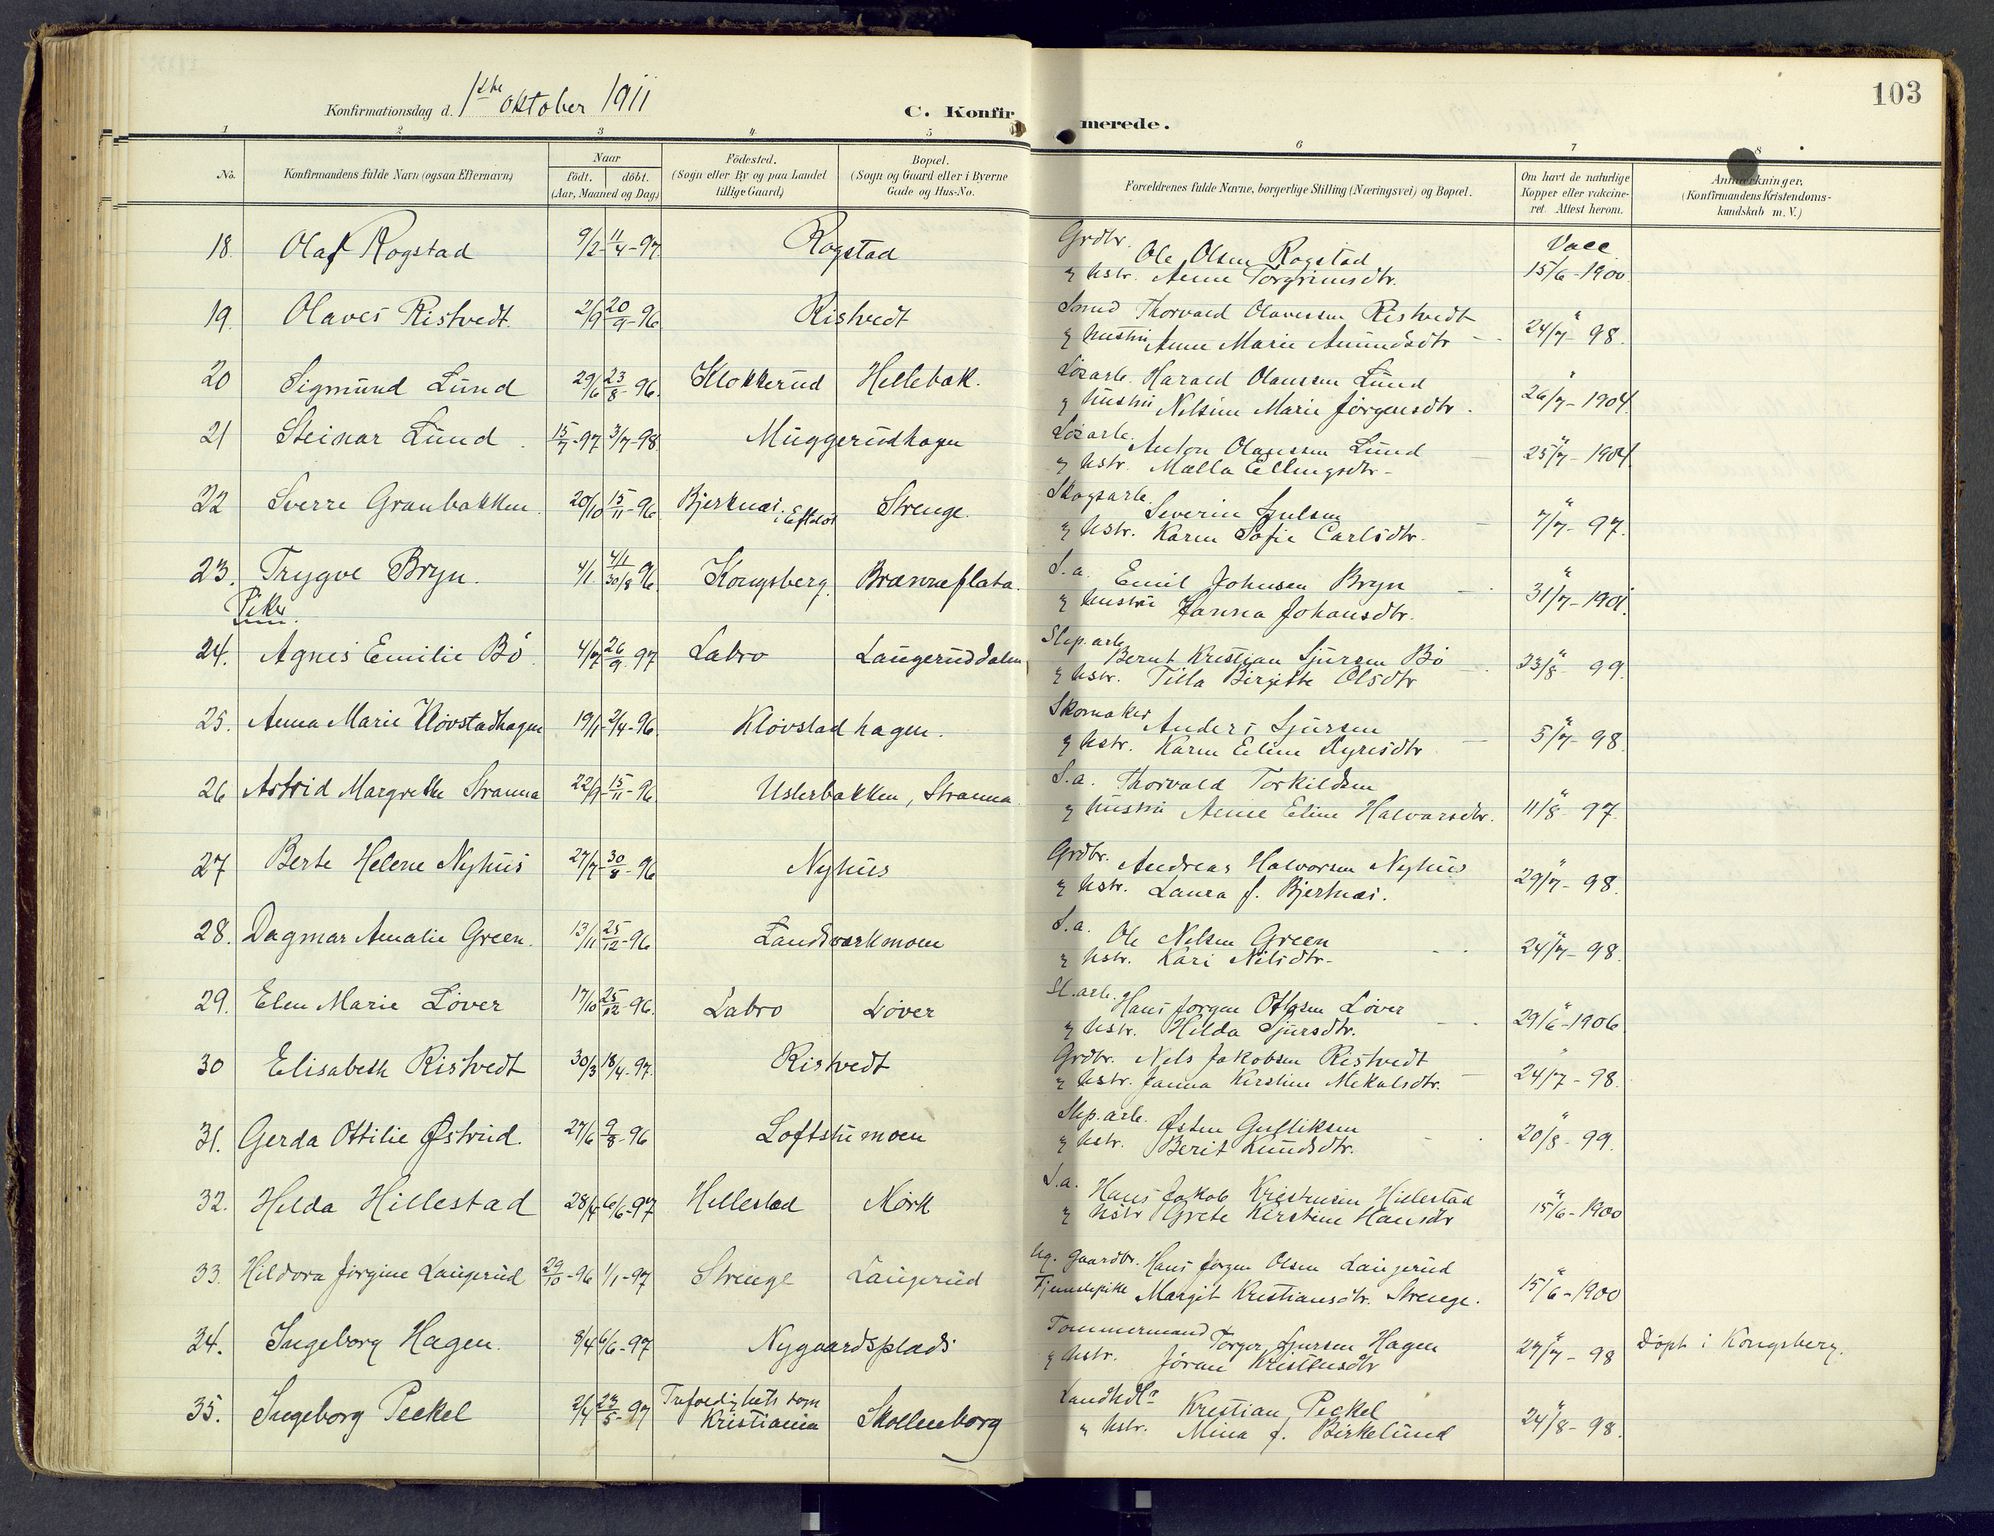 103
Konfirmationsdag d. 1ste oktober 1911
C. Konfirmerede.
1 2 3 4 5 6 7 8
No.
Konfirmandens fulde Navn (ogsaa Efternavn)
Naar
födt. döbt.
(Aar, Maaned og Dag)
Födested.
(Sogn eller By og paa Landet
tillige Gaard)
Bopæl.
(Sogn og Gaard eller i Byerne
Gade og Hus-No.
Forældrenes fulde Navne, borgerlige Stilling (Næringsvei) og Bopæl.
Om havt de naturlige
Kopper eller vakcine-
ret. Attest herom.
Anmærkninger.
(Konfirmandens Kristendoms-
kundskab m. V.)
18. Olaf Rogstad 9/2 11/4-97 Rogstad Grdbr. Ole Olsen Rogstad Vacc.
& hstr. Anne Torgrimsdtr. 15/6-1900
19. Olaves Ristvedt 2/9 20/9-96 Ristvedt Smed Thorvald Olavesen Ristvedt
& hustru Anne Marie Amundsdtr 24/7 " 98.
20 Sigmund Lund 29/6 23/8-96 Klokkerud Hellebæk. Løsarb. Harald Olaussen Lund
& hustru Nelsine Marie Jørgensdtr. 26/7 " 1904.
21 Steinar Lund 15/7-97 3/7-98 Muggerudhagen Løsarb. Anton Olaussen Lund
& hstr. Mælla Ellingsdtr 25/7 " 1904
22 Sverre Granbakken 20/10 15/11-96 Bjerknæs i Efteløt Strenge. Skogsarb. Severin Julsen
& hstr. Karen Sofie Carlsdtr. 7/7 " 97.
23. Trygve Bryn. 4/1 4/1 30/8 96 Kongsberg. Brænneflata. S.a. Emil Johnsen Bryn
& hustru Hanna Johansdtr. 31/7 " 1901.
Piker
24. Agnes Emilie Bø 4/7 26/9-97 Labro Laugeruddalen Slip.arb. Bernt Kristian Sjursen Bø
& hstr. Tilla Birgitte Olsdtr 23/8 " 99.
25. Anna Marie Kløvstadhagen 19/1 2/4-96. Kløvstadhagen. Skomaker Anders Sjursen
& hstr. Karen Eline Syversdtr 5/7 " 98.
26 Astrid Margrethe Stranna 22/9 15/11-96 Usterbakken, Stranna. S.a. Thorvald Torkildsen
& hustru Anne Eline Halvorsdtr. 11/8 " 97.
27 Berte Helene Nyhus 27/7 30/8-96 Nyhus Grdbr. Andreas Halvorsen Nyhus
& hstr. Laura f. Bjerknæs. 29/7 " 98.
28. Dagmar Amalie Green. 13/11 25/12-96 Landsværkmoen S.a. Ole Nelsen Green
& hstr. Kari Nilsdtr- 24/7 " 98.
29. Elen Marie Løver 17/10 25/12-96. Labro Løver Sl.arb. Hans Jørgen Ottosen Løver
& hstr. Hilda Sjursdtr. 29/6 " 1906.
30 Elisabeth Ristvedt 30/3 18/4-97. Ristvedt Grdbr. Nels Jakobsen Ristvedt
& hstr. Janna Kirstine Mekalsdtr. 24/7 " 98.
31. Gerda Ottilie Østrud. 27/6 9/8-96 Loftstumoen Slip.arb. Østen Gulliksen
& hstr. Berit Knudsdtr. 20/8 " 99.
32. Hilda Hillestad 28/4 6/6-97 Hellestad Mørk S.a. Hans Jakob Kristensen Hillestad
& hstr Grete Kirstine Hansdtr 15/6 " 1900
33. Hildora Jørgine Laugerud 29/10-96 1/1-97 Strenge Laugerud Ug. gaardbr. Hans Jørgen Olsen Laugerud
Tjenestepike Margit Kristiansdtr. Strenge. 15/6 " 1900
34. Ingeborg Hagen. 8/4 6/6-97 Nygaardsplads Tømmermand Torger Sjursen Hagen
& hstr. Jøran Kristensdtr 27/7 " 98 Døpt i Kongsberg.
35. Ingeborg Peckel 2/4 23/5-97 Trefoldighets sogn Kristiania Skollenborg Landhdl. Kristian Peckel
& hstr. Mina f. Birkelund 24/8 " 98.